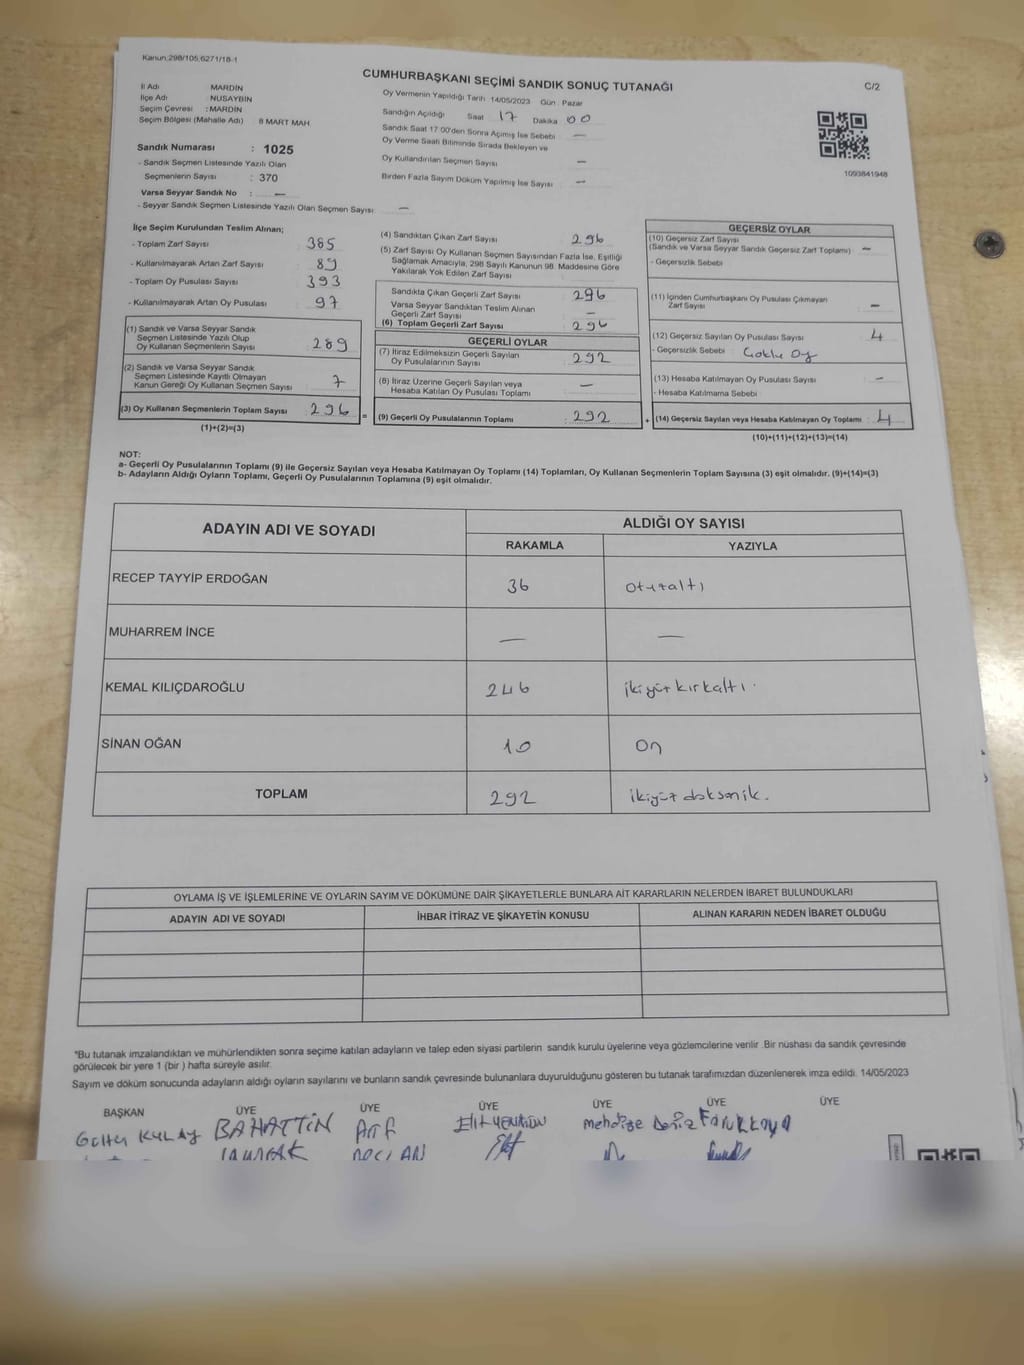 Kanun:298/105,6271/18-1
CUMHURBAŞKANI SEÇİMİ SANDIK SONUÇ TUTANAĞI
C/2
İl Adı MARDİN
İlçe Adı : NUSAYBİN
Seçim Çevresi : MARDİN
Seçim Bölgesi (Mahalle Adı) 8 MART MAH.
Oy Vermenin Yapıldığı Tarih 14/05/2023 Gün : Pazar
Sandığın Açıldığı Saat 17 Dakika 00
Sandık Saat 17:00'den Sonra Açılmış İse Sebebi —
Oy Verme Saati Bitiminde Sırada Bekleyen ve
Oy Kullandırılan Seçmen Sayısı —
Birden Fazla Sayım Döküm Yapılmış İse Sayısı —
1093841948
Sandık Numarası : 1025
- Sandık Seçmen Listesinde Yazılı Olan
Seçmenlerin Sayısı : 370
Varsa Seyyar Sandık No : —
- Seyyar Sandık Seçmen Listesinde Yazılı Olan Seçmen Sayısı —
İlçe Seçim Kurulundan Teslim Alınan;
- Toplam Zarf Sayısı 385
- Kullanılmayarak Artan Zarf Sayısı 89
- Toplam Oy Pusulası Sayısı 393
- Kullanılmayarak Artan Oy Pusulası 97
(1) Sandık ve Varsa Seyyar Sandık
Seçmen Listesinde Yazılı Olup
Oy Kullanan Seçmenlerin Sayısı 289
(2) Sandık ve Varsa Seyyar Sandık
Seçmen Listesinde Kayıtlı Olmayan
Kanun Gereği Oy Kullanan Seçmen Sayısı 7
(3) Oy Kullanan Seçmenlerin Toplam Sayısı 296 =
(1)+(2)=(3)
(4) Sandıktan Çıkan Zarf Sayısı 296
(5) Zarf Sayısı Oy Kullanan Seçmen Sayısından Fazla İse, Eşitliği
Sağlamak Amacıyla, 298 Sayılı Kanunun 98. Maddesine Göre
Yakılarak Yok Edilen Zarf Sayısı
Sandıkta Çıkan Geçerli Zarf Sayısı 296
Varsa Seyyar Sandıktan Teslim Alınan
Geçerli Zarf Sayısı —
(6) Toplam Geçerli Zarf Sayısı 296
GEÇERLİ OYLAR
(7) İtiraz Edilmeksizin Geçerli Sayılan
Oy Pusulalarının Sayısı 292
(8) İtiraz Üzerine Geçerli Sayılan veya
Hesaba Katılan Oy Pusulaları Toplamı —
(9) Geçerli Oy Pusulalarının Toplamı : 292 +
GEÇERSİZ OYLAR
(10) Geçersiz Zarf Sayısı
(Sandık ve Varsa Seyyar Sandık Geçersiz Zarf Toplamı) —
- Geçersizlik Sebebi
(11) İçinden Cumhurbaşkanı Oy Pusulası Çıkmayan
Zarf Sayısı —
(12) Geçersiz Sayılan Oy Pusulası Sayısı 4
- Geçersizlik Sebebi : Çoklu Oy
(13) Hesaba Katılmayan Oy Pusulası Sayısı —
- Hesaba Katılmama Sebebi
(14) Geçersiz Sayılan veya Hesaba Katılmayan Oy Toplamı : 4
(10)+(11)+(12)+(13)=(14)
NOT:
a- Geçerli Oy Pusulalarının Toplamı (9) ile Geçersiz Sayılan veya Hesaba Katılmayan Oy Toplamı (14) Toplamları, Oy Kullanan Seçmenlerin Toplam Sayısına (3) eşit olmalıdır. (9)+(14)=(3)
b- Adayların Aldığı Oyların Toplamı, Geçerli Oy Pusulalarının Toplamına (9) eşit olmalıdır.
ADAYIN ADI VE SOYADI ALDIĞI OY SAYISI
RAKAMLA YAZIYLA
RECEP TAYYİP ERDOĞAN 36 otuzaltı
MUHARREM İNCE — —
KEMAL KILIÇDAROĞLU 246 ikiyüz kırkaltı
SİNAN OĞAN 10 On
TOPLAM 292 ikiyüz doksaniki.
OYLAMA İŞ VE İŞLEMLERİNE VE OYLARIN SAYIM VE DÖKÜMÜNE DAİR ŞİKAYETLERLE BUNLARA AİT KARARLARIN NELERDEN İBARET BULUNDUKLARI
ADAYIN ADI VE SOYADI İHBAR İTİRAZ VE ŞİKAYETİN KONUSU ALINAN KARARIN NEDEN İBARET OLDUĞU
*Bu tutanak imzalandıktan ve mühürlendikten sonra seçime katılan adayların ve talep eden siyasi partilerin sandık kurulu üyelerine veya gözlemcilerine verilir. Bir nüshası da sandık çevresinde
görülecek bir yere 1 (bir ) hafta süreyle asılır.
Sayım ve döküm sonucunda adayların aldığı oyların sayılarını ve bunların sandık çevresinde bulunanlara duyurulduğunu gösteren bu tutanak tarafımızdan düzenlenerek imza edildi. 14/05/2023
BAŞKAN ÜYE ÜYE ÜYE ÜYE ÜYE ÜYE
BAHATTİN Arif Deniz Faruk Kaya